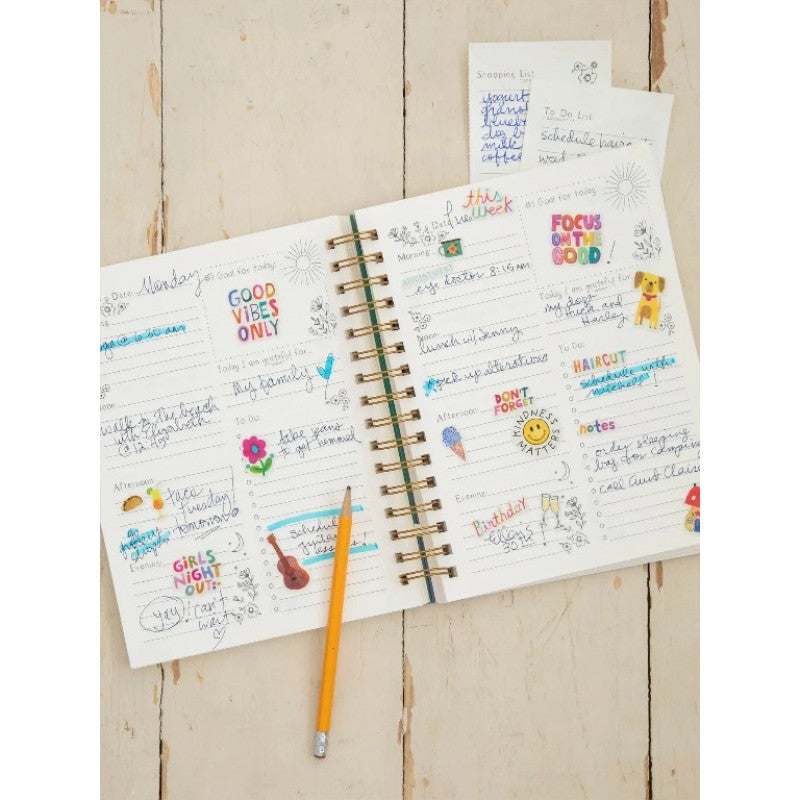 Shopping List
yogurt
milk
coffee
To Do List
schedule
Date: Monday
#1 Goal for today:
GOOD
VIBES
ONLY
@ 6:30 am
Today I am grateful for:
My family
walk to the beach
with Elizabeth
@ 12:45
To Do:
take jeans
to get hemmed
Afternoon:
taco
Tuesday
tomorrow!
Evening:
GIRLS
NIGHT
OUT
You! Can't
wait
Schedule
guitar
lessons!
this
week
Date:
#1 Goal for today:
FOCUS
ON THE
GOOD
!
Morning:
APPOINTMENT
eye doctor 8:15 am
Today I am grateful for:
my dogs
Huck and
Harley
Noon:
lunch w/ Jenny
pick up alterations
To Do:
HAIRCUT
schedule with
DON'T
FORGET
KINDNESS
MATTERS
Afternoon:
notes
order sleeping
bag for camping
call Aunt Clair
Evening:
Birthday